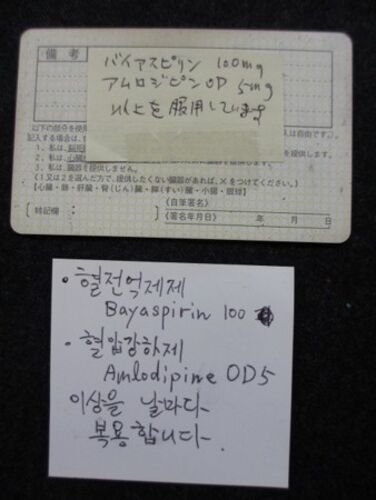 備考
バイアスピリン 100mg
アムロジピンOD 5mg
以上を服用しています
以下の部分を使用
記入する場合は、
人は自由です。)
1. 私は、
を提供します。
2. 私は、心臓
を提供します。
3. 私は、臓器を提供しません。
(1又は2を選んだ方で、提供したくない臓器があれば、×をつけてください。)
【心臓・肺・肝臓・腎(じん)臓・膵(すい)臓・小腸・眼球】
〔特記欄:
《自筆署名》
《署名年月日》 年 月 日
・혈전억제제
Bayaspirin 100
・혈압강하제
Amlodipine OD5
이상을 날마다
복용합니다.